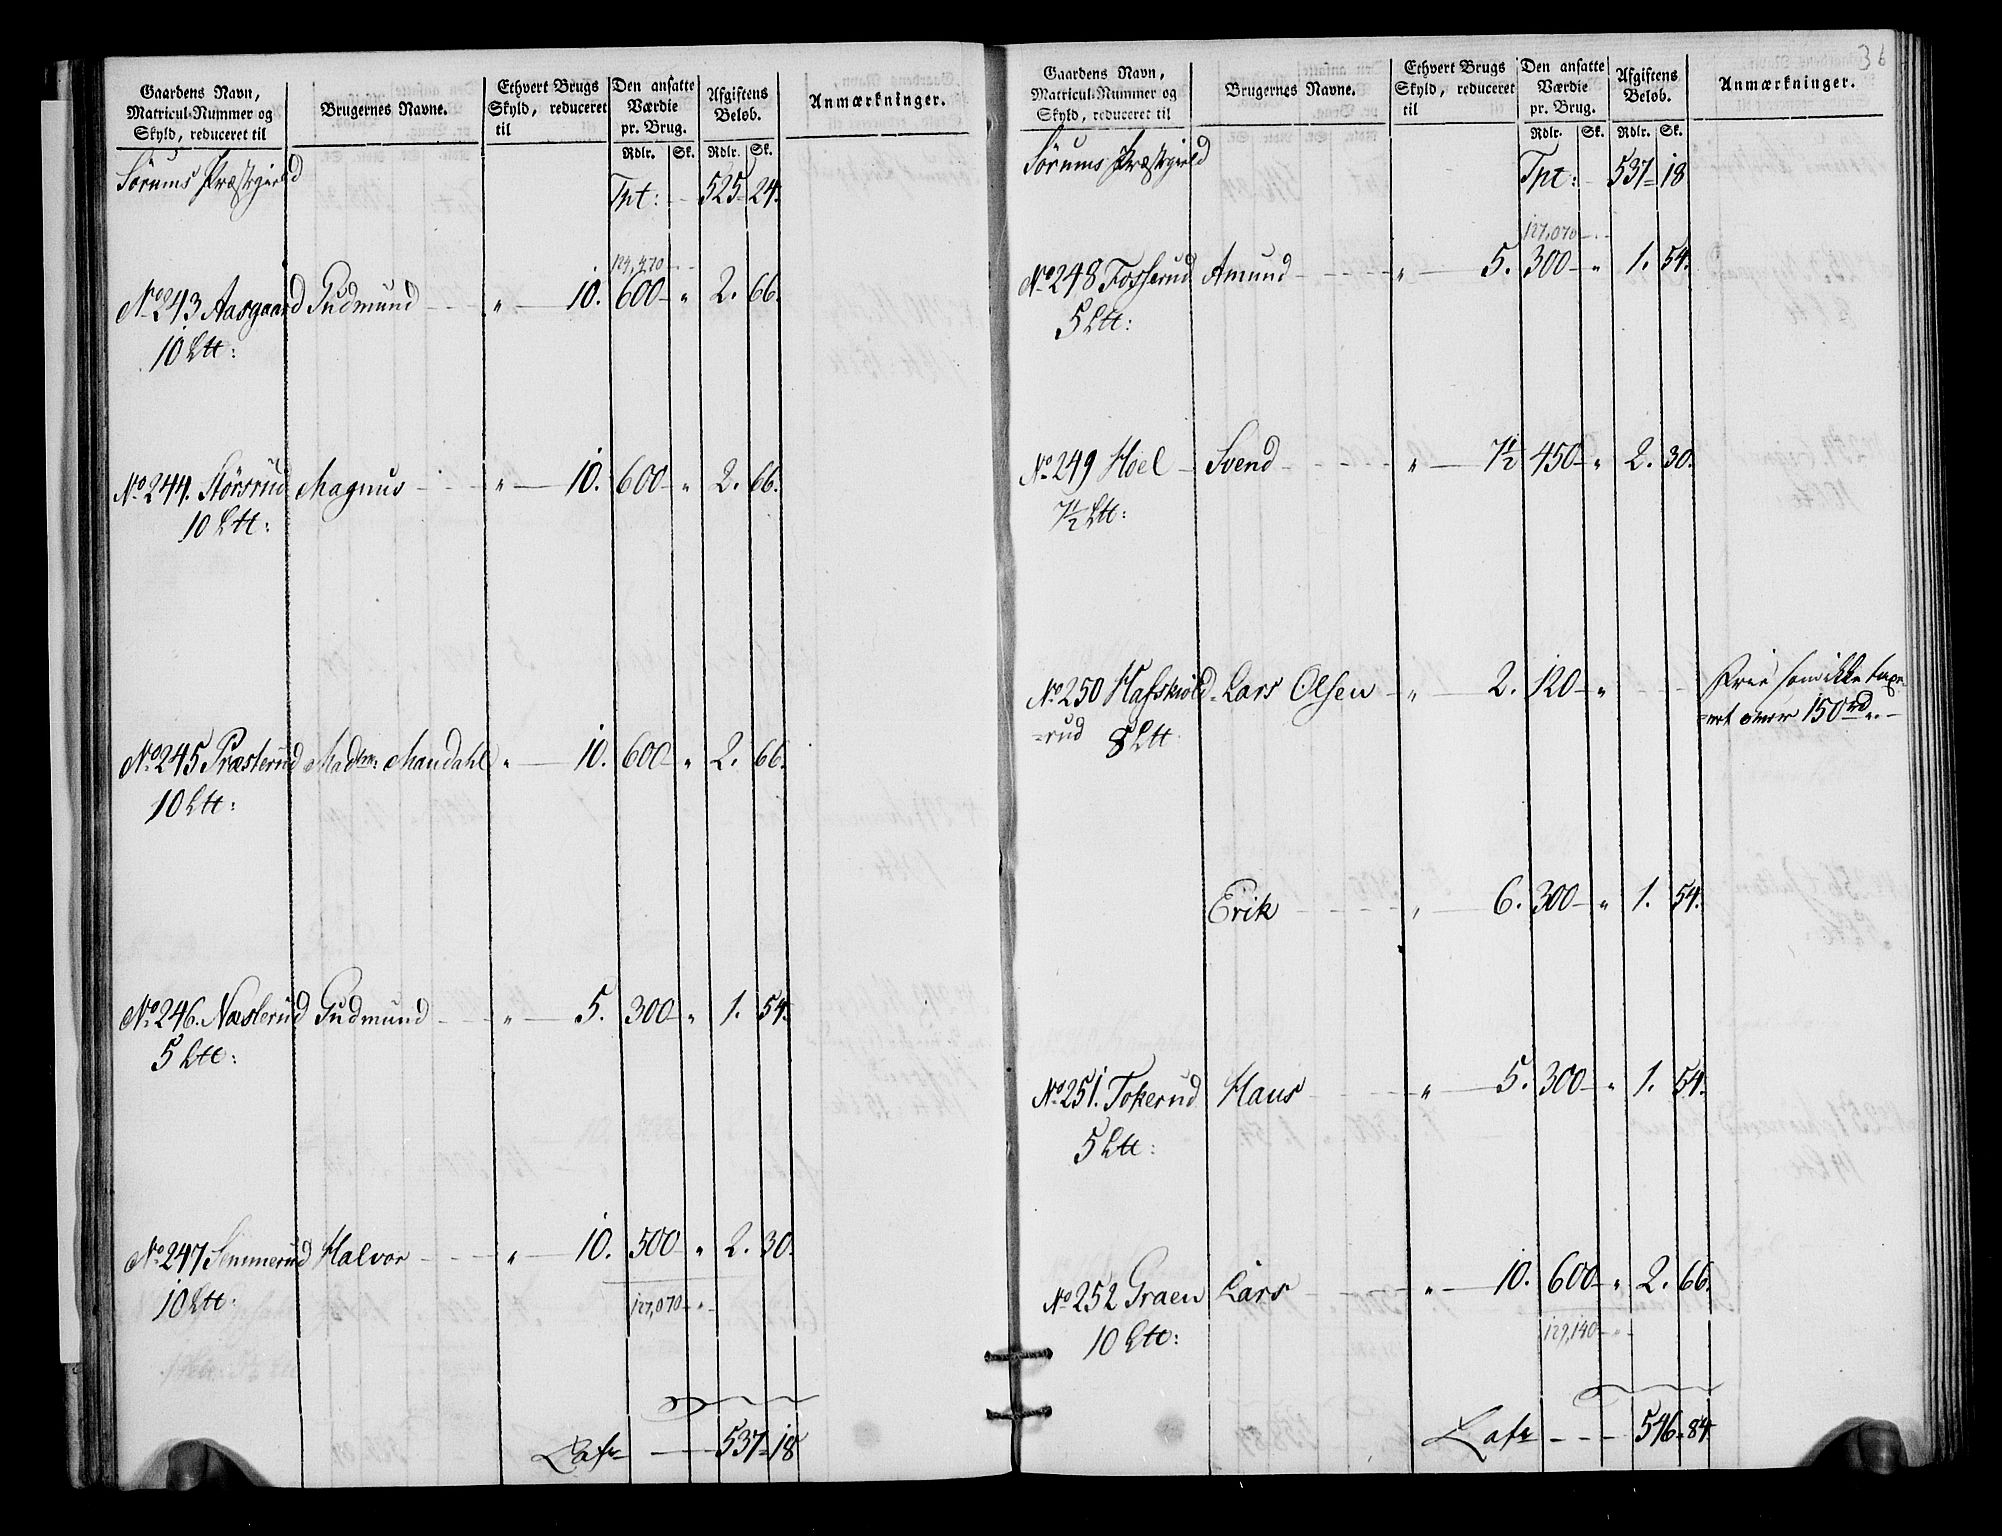 Gaardens Navn, Matricul-Nummer og Skyld, reduceret til | Brugernes Navne. | Ethvert Brugs Skyld, reduceret til | Den ansatte Værdie pr. Brug. | Afgiftens Beløb. | Anmærkninger.
Rdlr. | Sk. | Rdlr. | Sk.
Sørums Præstegield Tpt: - - 525 - 24.
124,470 - -
No 243 Aasgaard Gudmund - - - „ - 10. 600 - „ 2. 66.
10 Ltt:
No 244. Størsrud Magnus - - - „ - 10. 600 - „ 2. 66.
10 Ltt:
No 245 Præsterud Madme Mandahl „ - 10. 600 - „ 2. 66.
10 Ltt:
No 246. Næsterud Gudmund - - - „ - 5. 300 - „ 1. 54.
5 Ltt:
No 247 Semmerud Halvor - - - „ - 10. 500 - „ 2. 30.
10 Ltt:
127,070 - „ -
Lats - - - 537 - 18
36
Gaardens Navn, Matricul-Nummer og Skyld, reduceret til | Brugernes Navne. | Ethvert Brugs Skyld, reduceret til | Den ansatte Værdie pr. Brug. | Afgiftens Beløb. | Anmærkninger.
Rdlr. | Sk. | Rdlr. | Sk.
Sørums Præstegield Tpt: - 537 - 18
127,070 - -
No 248 Fosserud Amund - - - - „ - 5. 300 - „ 1. 54.
5 Ltt:
No 249 Hoel - Svend - - - - „ - 7½ 450 - „ 2. 30.
7½ Ltt:
No 250 Hafskiold Lars Olsen - „ - 2. 120 - „ - - - Frie som ikke taxe-
=rud 8 Ltt =ret over 150 rd „ -
Erik - - - - „ - 6. 300 - „ 1. 54.
No 251. Tokerud Hans - - - - „ - 5. 300 - „ 1. 54.
5 Ltt:
No 252 Graen Lars - - - - „ - 10. 600 - „ 2. 66.
10 Ltt:
129,140 - „ -
Lats - - - 546 - 84